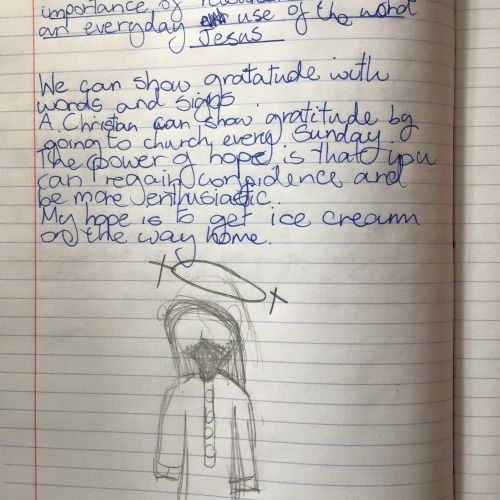 importance of
an everyday use of the word
Jesus
We can show gratatude with
words and signs.
A. Christan can show gratitude by
going to church, every Sunday.
The power of hope is that you
can regain confidence and
be more enthusiastic.
My hope is to get ice creamm
on the way home.